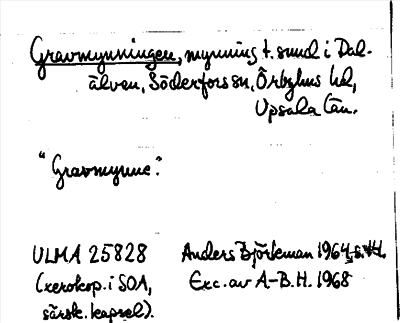 Gravmynningen, mynning t. sund i Dal-
älven, Söderfors sn, Örbyhus hd,
Upsala län.
"Gravmynne".
ULMA 25828 Anders Björkman 1964, s.
(xerokop. i SOA, Exc. av A-B. H. 1968
särsk. kapsel).